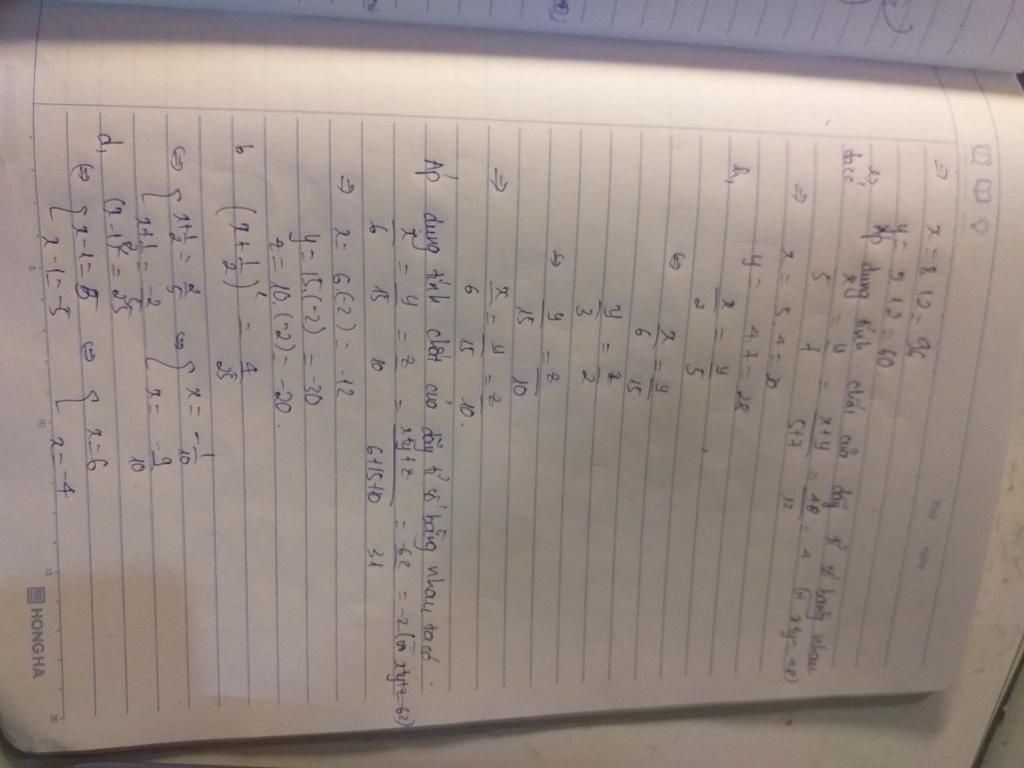 ⇒ x = 8.12 = 96
y = 5.12 = 60
Áp dụng tính chất của dãy tỉ số bằng nhau
ta có
x/5 = y/7 = x+y/5+7 = 48/12 = 4 (vì x+y=48)
⇒ x = 5.4 = 20
y = 4.7 = 28
x/2 = y/5
⇔ x/6 = y/15
y/3 = z/2
⇔ y/15 = z/10
⇒ x/6 = y/15 = z/10.
Áp dụng tính chất của dãy tỉ số bằng nhau ta có.
x/6 = y/15 = z/10 = x+y+z/6+15+10 = -62/31 = -2 (vì x+y+z=-62)
⇒ x = 6.(-2) = -12
y = 15.(-2) = -30
z = 10.(-2) = -20.
b (x + 1/2)² = 4/25
⇔ { x+1/2 = 2/5 ⇔ { x = -1/10
{ x+1/2 = -2/5 { x = -9/10
d, (x-1)² = 25
⇔ { x-1 = 5 ⇔ { x = 6
{ x-1 = -5 { x = -4
HONG HA